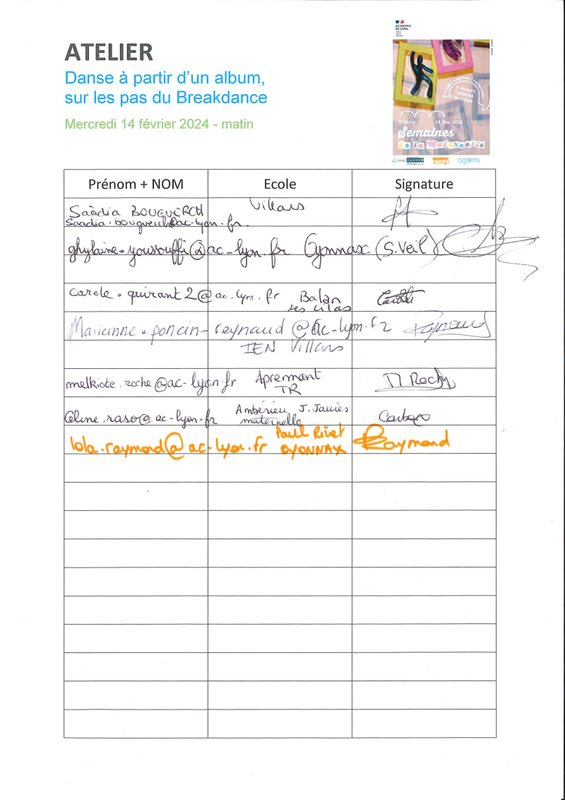 ATELIER
Danse à partir d'un album,
sur les pas du Breakdance
Mercredi 14 février 2024 - matin
ACADÉMIE
DE LYON
14 fév. 2024
Semaines
de la Maternelle
Prénom + NOM Ecole Signature
Saâdia BOUGUERCH Villars
saadia.bouguerch@ac-lyon.fr.
ghylaine.youssouffi2@ac-lyon.fr Oyonnax (S.Veil)
carole.quirant2@ac-lyon.fr Balan
Les Lilas
Marianne.poncin-reynaud@ac-lyon.fr Reynaud
IEN Villars
melkiote.roche@ac-lyon.fr Apremont M Roche
TR
Celine.raso@ac-lyon.fr Ambérieu J. Jaurès
maternelle
lola.raymond@ac-lyon.fr Paul Rivet Raymond
OYONNAX